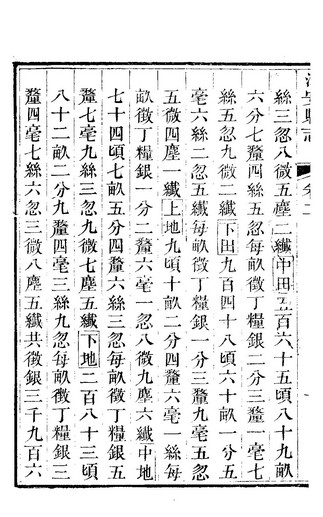 絲三忽八微五塵二纖中田五百六十五頃八十九畝
六分七釐四絲五忽每畝徵丁糧銀二分三釐一毫七
絲五忽九微二纖下田九百四十八頃六十畝一分五
毫六絲五忽五纖每畝徵丁糧銀一分三釐九毫五忽
五微四塵一纖上地九頃十畝二分四釐六毫一絲每
畝徵丁糧銀一分二釐六毫一忽八微九塵六纖中地
七十四頃七畝五分四釐四毫三絲三忽每畝徵銀五
釐七毫九絲三忽九微七塵五纖下地二百八十三頃
八十二畝二分九釐四毫三絲九忽每畝徵丁糧銀三
釐四毫七絲六忽三微八塵五纖共徵銀三千九百六